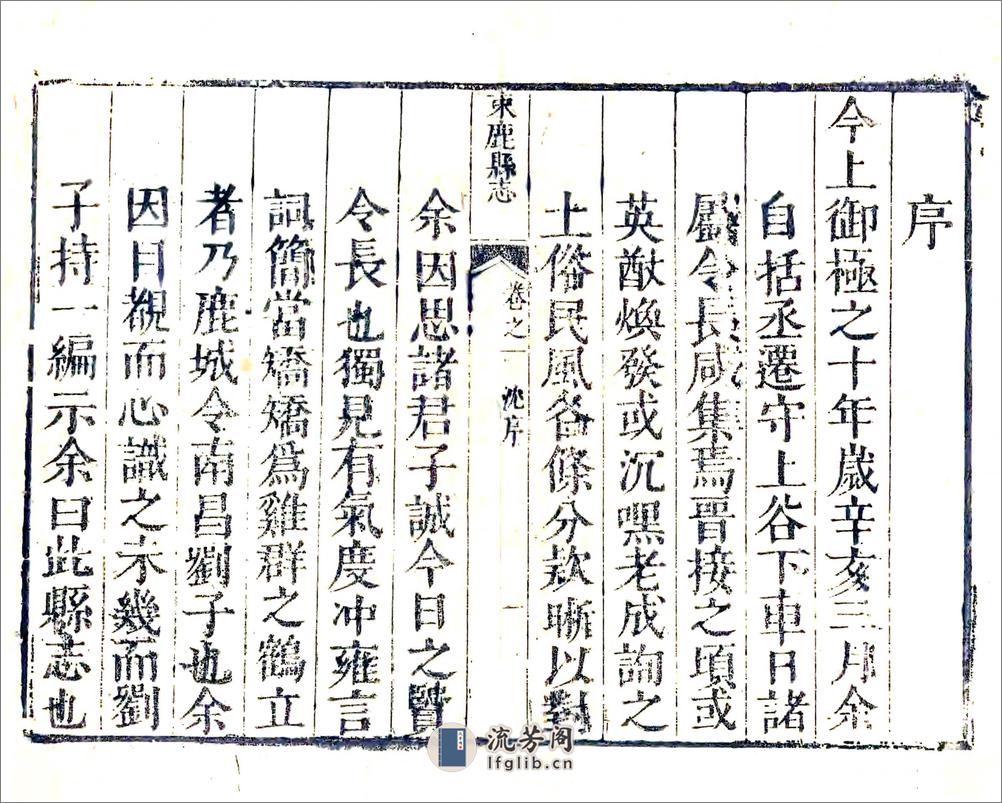 序
今上御極之十年歲辛亥三月余
自括丞遷守上谷下車日諸
屬令長咸集焉晋接之頃或
英猷煥發或沉嘿老成詢之
土俗民風各條分欵晰以對
束鹿縣志
卷之一
沈序
一
余因思諸君子誠今日之賢
令長也獨見有氣度冲雍言
詞簡當矯矯爲雞群之鶴立
者乃鹿城令南昌劉子也余
因目覩而心識之未幾而劉
子持一編示余曰此縣志也
流芳阁
lfglib.cn